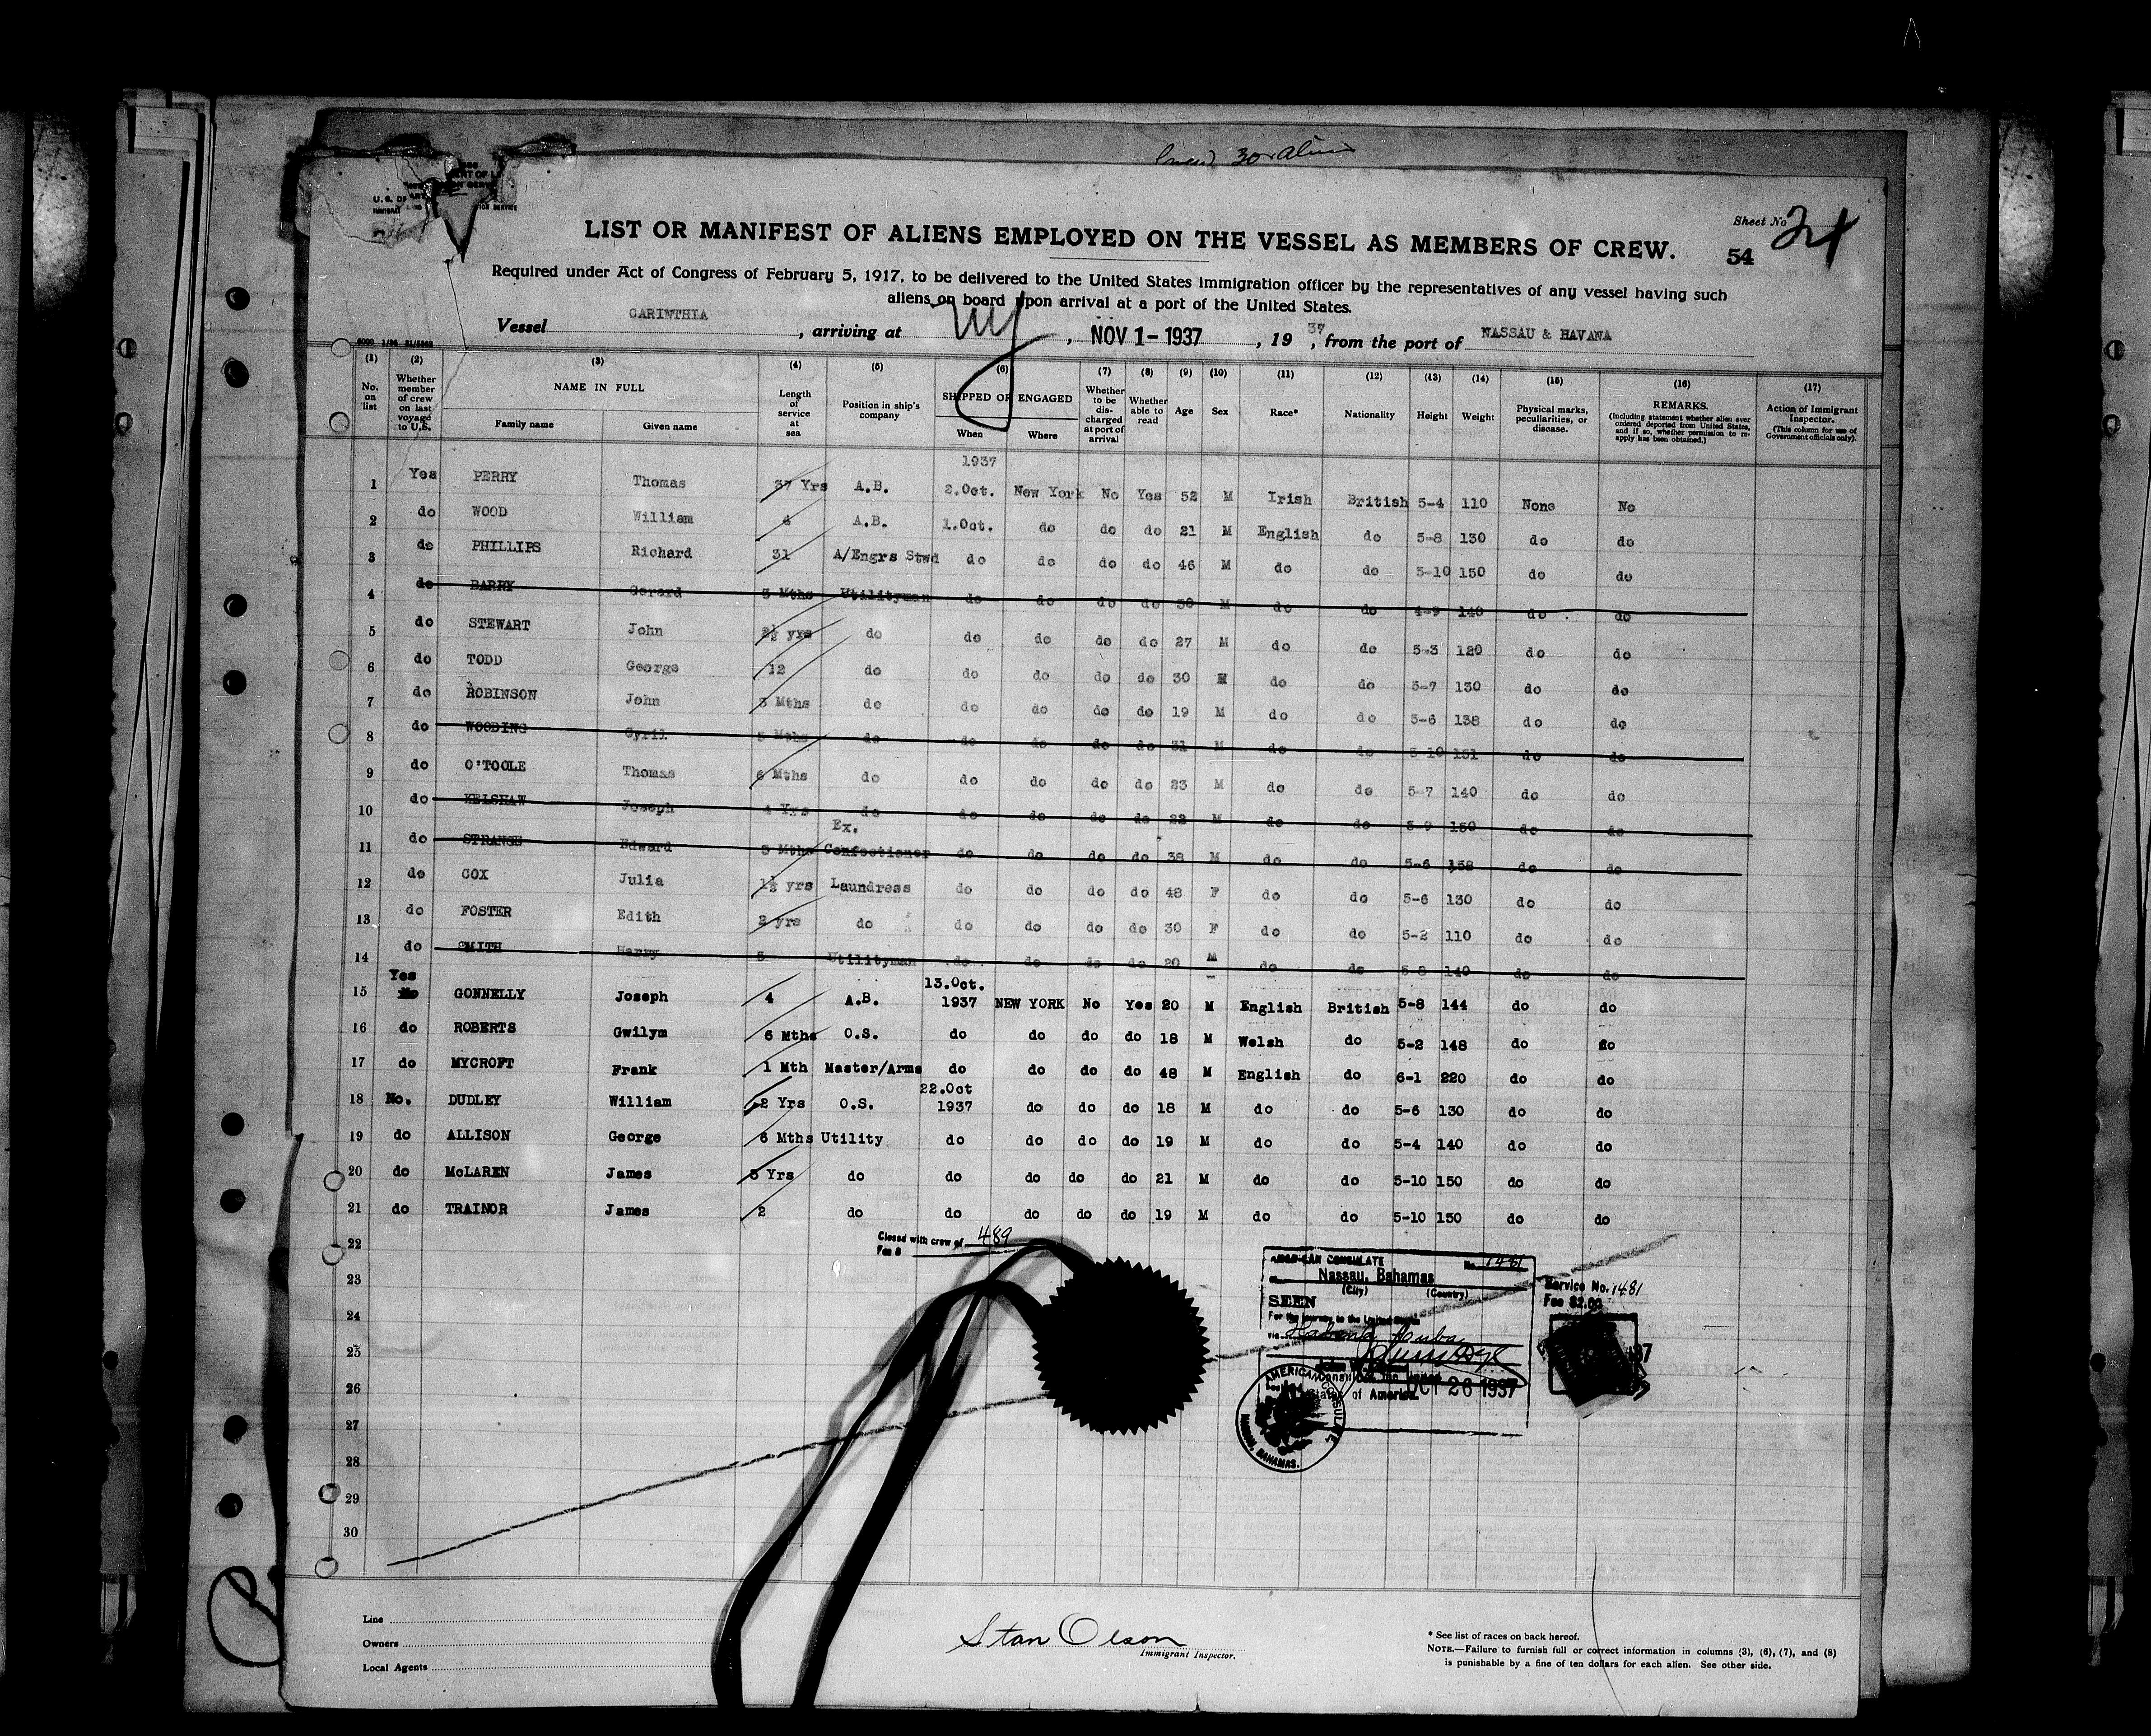 U. S. DE
LIST OR MANIFEST OF ALIENS EMPLOYED ON THE VESSEL AS MEMBERS OF CREW.
Sheet No 24
54
Required under Act of Congress of February 5, 1917, to be delivered to the United States immigration officer by the representatives of any vessel having such
aliens on board upon arrival at a port of the United States.
Vessel CARINTHIA, arriving at NY, NOV 1-1937, 1937, from the port of NASSAU & HAVANA
(1) (2) (3) (4) (5) (6) (7) (8) (9) (10) (11) (12) (13) (14) (15) (16) (17)
No. on list
Whether member of crew on last voyage to U.S.
NAME IN FULL
Family name Given name
Length of service at sea
Position in ship's company
SHIPPED OR ENGAGED
When Where
Whether to be discharged at port of arrival
Whether able to read
Age Sex Race* Nationality Height Weight
Physical marks, peculiarities, or disease.
REMARKS.
(Including statement whether alien ever ordered deported from United States, and if so, whether permission to reapply has been obtained.)
Action of Immigrant Inspector.
(This column for use of Government officials only).
1937
1 Yes PERRY Thomas 37 Yrs A.B. 2.Oct. New York No Yes 52 M Irish British 5-4 110 None No
2 do WOOD William 4 A.B. 1.Oct. do do do 21 M English do 5-8 130 do do
3 do PHILLIPS Richard 31 A/Engrs Stwd do do do do 46 M do do 5-10 150 do do
4 do BARRY Gerard 3 Mths Utilityman do do do do 30 M do do 4-9 140 do do
5 do STEWART John 2½ yrs do do do do do 27 M do do 5-3 120 do do
6 do TODD George 12 do do do do do 30 M do do 5-7 130 do do
7 do ROBINSON John 3 Mths do do do do do 19 M do do 5-6 138 do do
8 do WOODING Cyril 5 Mths do do do do do 31 M do do 5-10 151 do do
9 do O'TOOLE Thomas 6 Mths do do do do do 23 M do do 5-7 140 do do
10 do KELSHAW Joseph 4 Yrs do do do do do 22 M do do 5-9 150 do do
Ex.
11 do STRANGE Edward 3 Mths Confectioner do do do do 38 M do do 5-6 138 do do
12 do COX Julia 1½ yrs Laundress do do do do 48 F do do 5-6 130 do do
13 do FOSTER Edith 2 yrs do do do do do 30 F do do 5-2 110 do do
14 do SMITH Harry 5 Utilityman do do do do 20 M do do 5-8 140 do do
Yes 13.Oct.
15 GONNELLY Joseph 4 A.B. 1937 NEW YORK No Yes 20 M English British 5-8 144 do do
16 do ROBERTS Gwilym 6 Mths O.S. do do do do 18 M Welsh do 5-2 148 do do
17 do MYCROFT Frank 1 Mth Master/Arms do do do do 48 M English do 6-1 220 do do
22.Oct
18 No. DUDLEY William 2 Yrs O.S. 1937 do do do 18 M do do 5-6 130 do do
19 do ALLISON George 6 Mths Utility do do do do 19 M do do 5-4 140 do do
20 do McLAREN James 5 Yrs do do do do do 21 M do do 5-10 150 do do
21 do TRAINOR James 2 do do do do do 19 M do do 5-10 150 do do
22
Closed with crew of 489
23
24
25
26
27
28
29
30
AMERICAN CONSULATE No. 1481
Nassau, Bahamas
(City) (Country)
SEEN
For the journey to the United States
via Habana, Cuba
of America.
OCT 26 1937
AMERICAN CONSULATE
NASSAU, BAHAMAS.
Service No. 1481
Fee $2.00
Line
Owners
Local Agents
Stan Olson
Immigrant Inspector.
* See list of races on back hereof.
NOTE.—Failure to furnish full or correct information in columns (3), (6), (7), and (8)
is punishable by a fine of ten dollars for each alien. See other side.